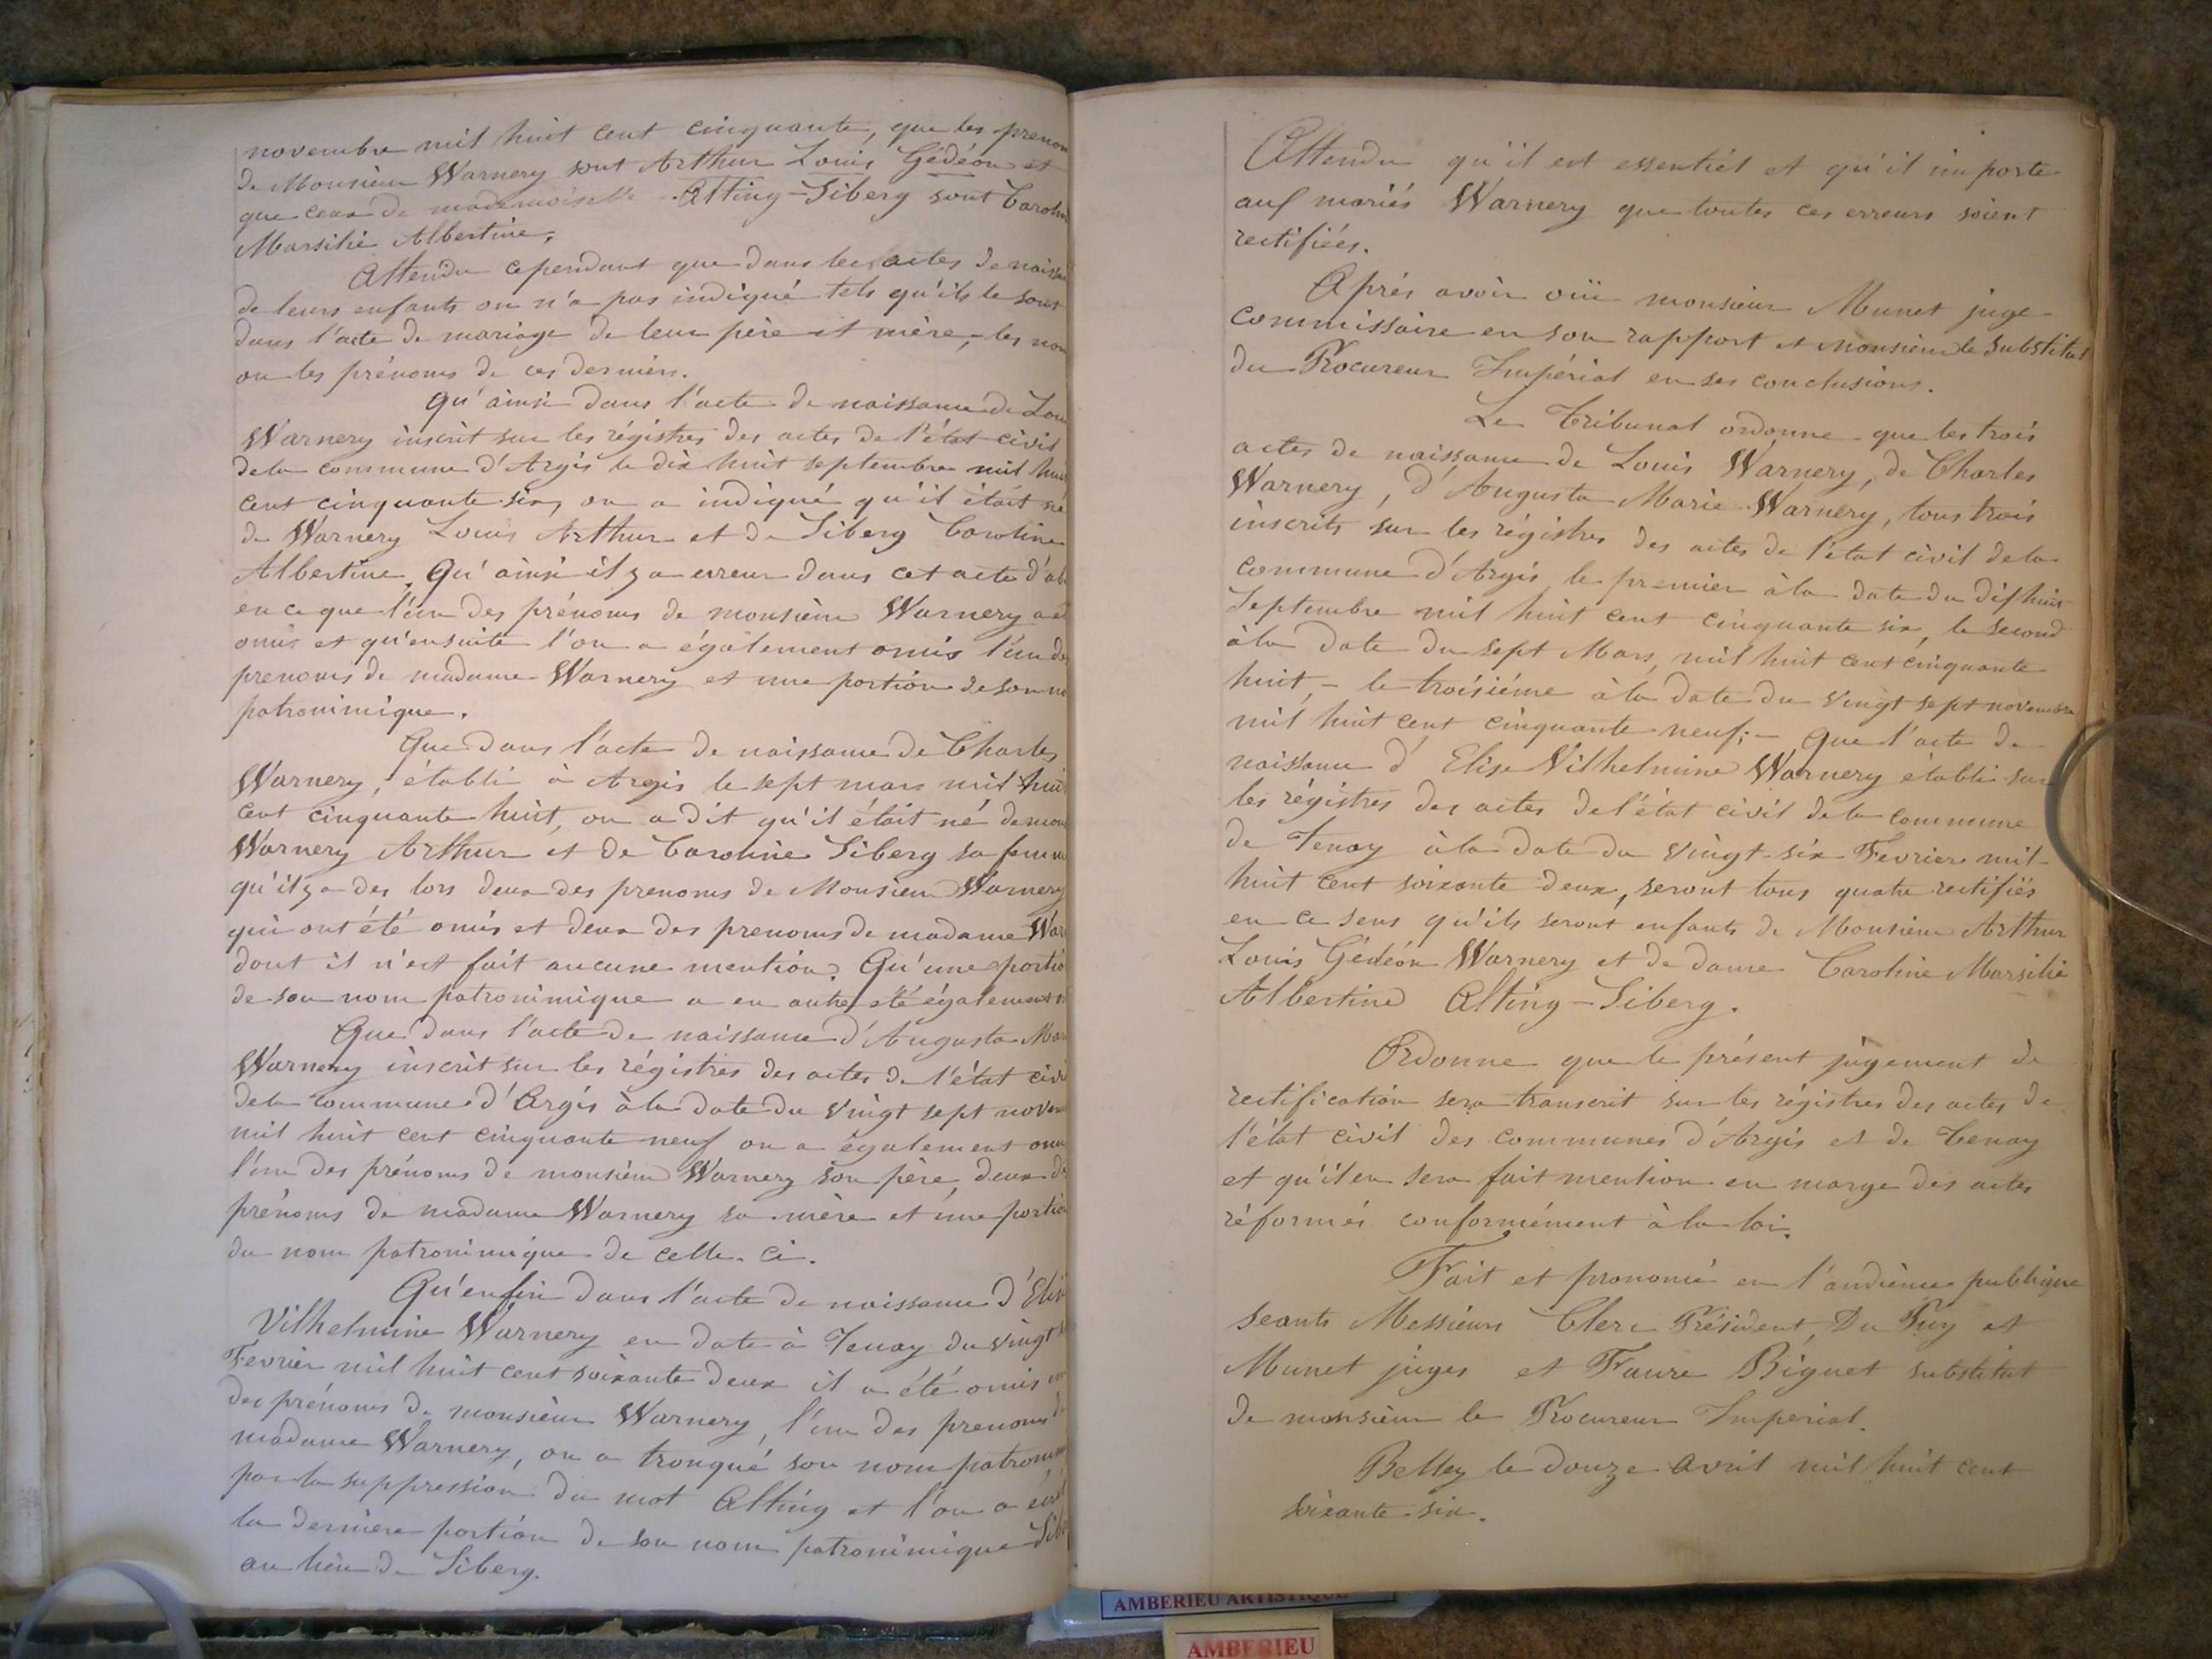 novembre mil huit cent cinquante, que les prenom
de Monsieur Warnery sont Arthur Louis Gédéon et
que ceux de mademoiselle Alting-Siberg sont Carolin
Marsilié Albertine,
Attendu cependant que dans les actes de naissan
de leurs enfants on n'a pas indiqué tels qu'ils le sont
dans l'acte de mariage de leur père et mère, les nom
ou les prénoms de ces derniers.
Qu'ainsi dans l'acte de naissance de Lou
Warnery inscrit sur les régistres des actes de l'état civil
de la commune d'Argis le dix huit septembre mil hui
cent cinquante six, on a indiqué qu'il était né
de Warnery Louis Arthur et de Siberg Caroline
Albertine, Qu'ainsi il y a erreur dans cet acte d'ab
en ce que l'un des prénoms de monsieur Warnery a ét
omis et qu'ensuite l'on a également omis l'un de
prenoms de madame Warnery et une portion de son no
patronimique.
Que dans l'acte de naissance de Charles
Warnery, établi à Argis le sept mars mil hui
cent cinquante huit, on a dit qu'il était né de mon
Warnery Arthur et de Caroline Siberg sa femme
qu'il y a des lors deux des prenoms de Monsieur Warnery
qui ont été omis et deux des prenoms de madame War
dont il n'est fait aucune mention. Qu'une portio
de son nom patronimique a en outre été également
Que dans l'acte de naissance d'Augusta Mar
Warnery inscrit sur les régistres des actes de l'état civi
de la commune d'Argis à la date du vingt sept novem
mil huit cent cinquante neuf on a également omi
l'un des prénoms de monsieur Warnery son père, deux de
prénoms de madame Warnery sa mère et une portio
du nom patronimique de celle-ci.
Qu'enfin dans l'acte de naissance d'Elis
Vilhelmine Warnery en date à Tenay du vingt s
Fevrier mil huit cent soixante deux il a été omis un
des prénoms de monsieur Warnery, l'un des prenoms de
madame Warnery, on a tronqué son nom patronim
par la suppression du mot Alting et l'on a écrit
la dernière portion de son nom patronimique Sib
au lieu de Siberg.
Attendu qu'il est essentiel et qu'il importe
aux mariés Warnery que toutes ces erreurs soient
rectifiées.
Après avoir oüi monsieur Munet juge-
commissaire en son rapport et monsieur le Substitut
du Procureur Impérial en ses conclusions.
Le Tribunal ordonne que les trois
actes de naissance de Louis Warnery, de Charles
Warnery, d'Augusta Marie Warnery, tous trois
inscrits sur les régistres des actes de l'etat civil de la
commune d'Argis le premier à la date du dix huit
Septembre mil huit cent cinquante six, le second
à la date du sept Mars, mil huit cent cinquante
huit, - le troisième à la date du vingt sept novembre
mil huit cent cinquante neuf; - Que l'acte de
naissance d'Elise Vilhelmine Warnery établi sur
les régistres des actes de l'état civil de la commune
de Tenay à la date du vingt-six Fevrier mil-
huit cent soixante deux, seront tous quatre rectifiés
en ce sens qu'ils seront enfants de Monsieur Arthur
Louis Gédéon Warnery et de dame Caroline Marsilié
Albertine Alting-Siberg.
Ordonne que le présent jugement de
rectification sera transcrit sur les régistres des actes de
l'état civil des communes d'Argis et de Tenay
et qu'il en sera fait mention en marge des actes
réformés conformément à la loi.
Fait et prononcé en l'audience publique
seants Messieurs Clerc Président, Du Puy et
Munet juges et Faure Biguet substitut
de monsieur le Procureur Imperial.
Belley le douze Avril mil huit cent
soixante-six.
AMBERIEU ARTISTIQUE
AMBERIEU